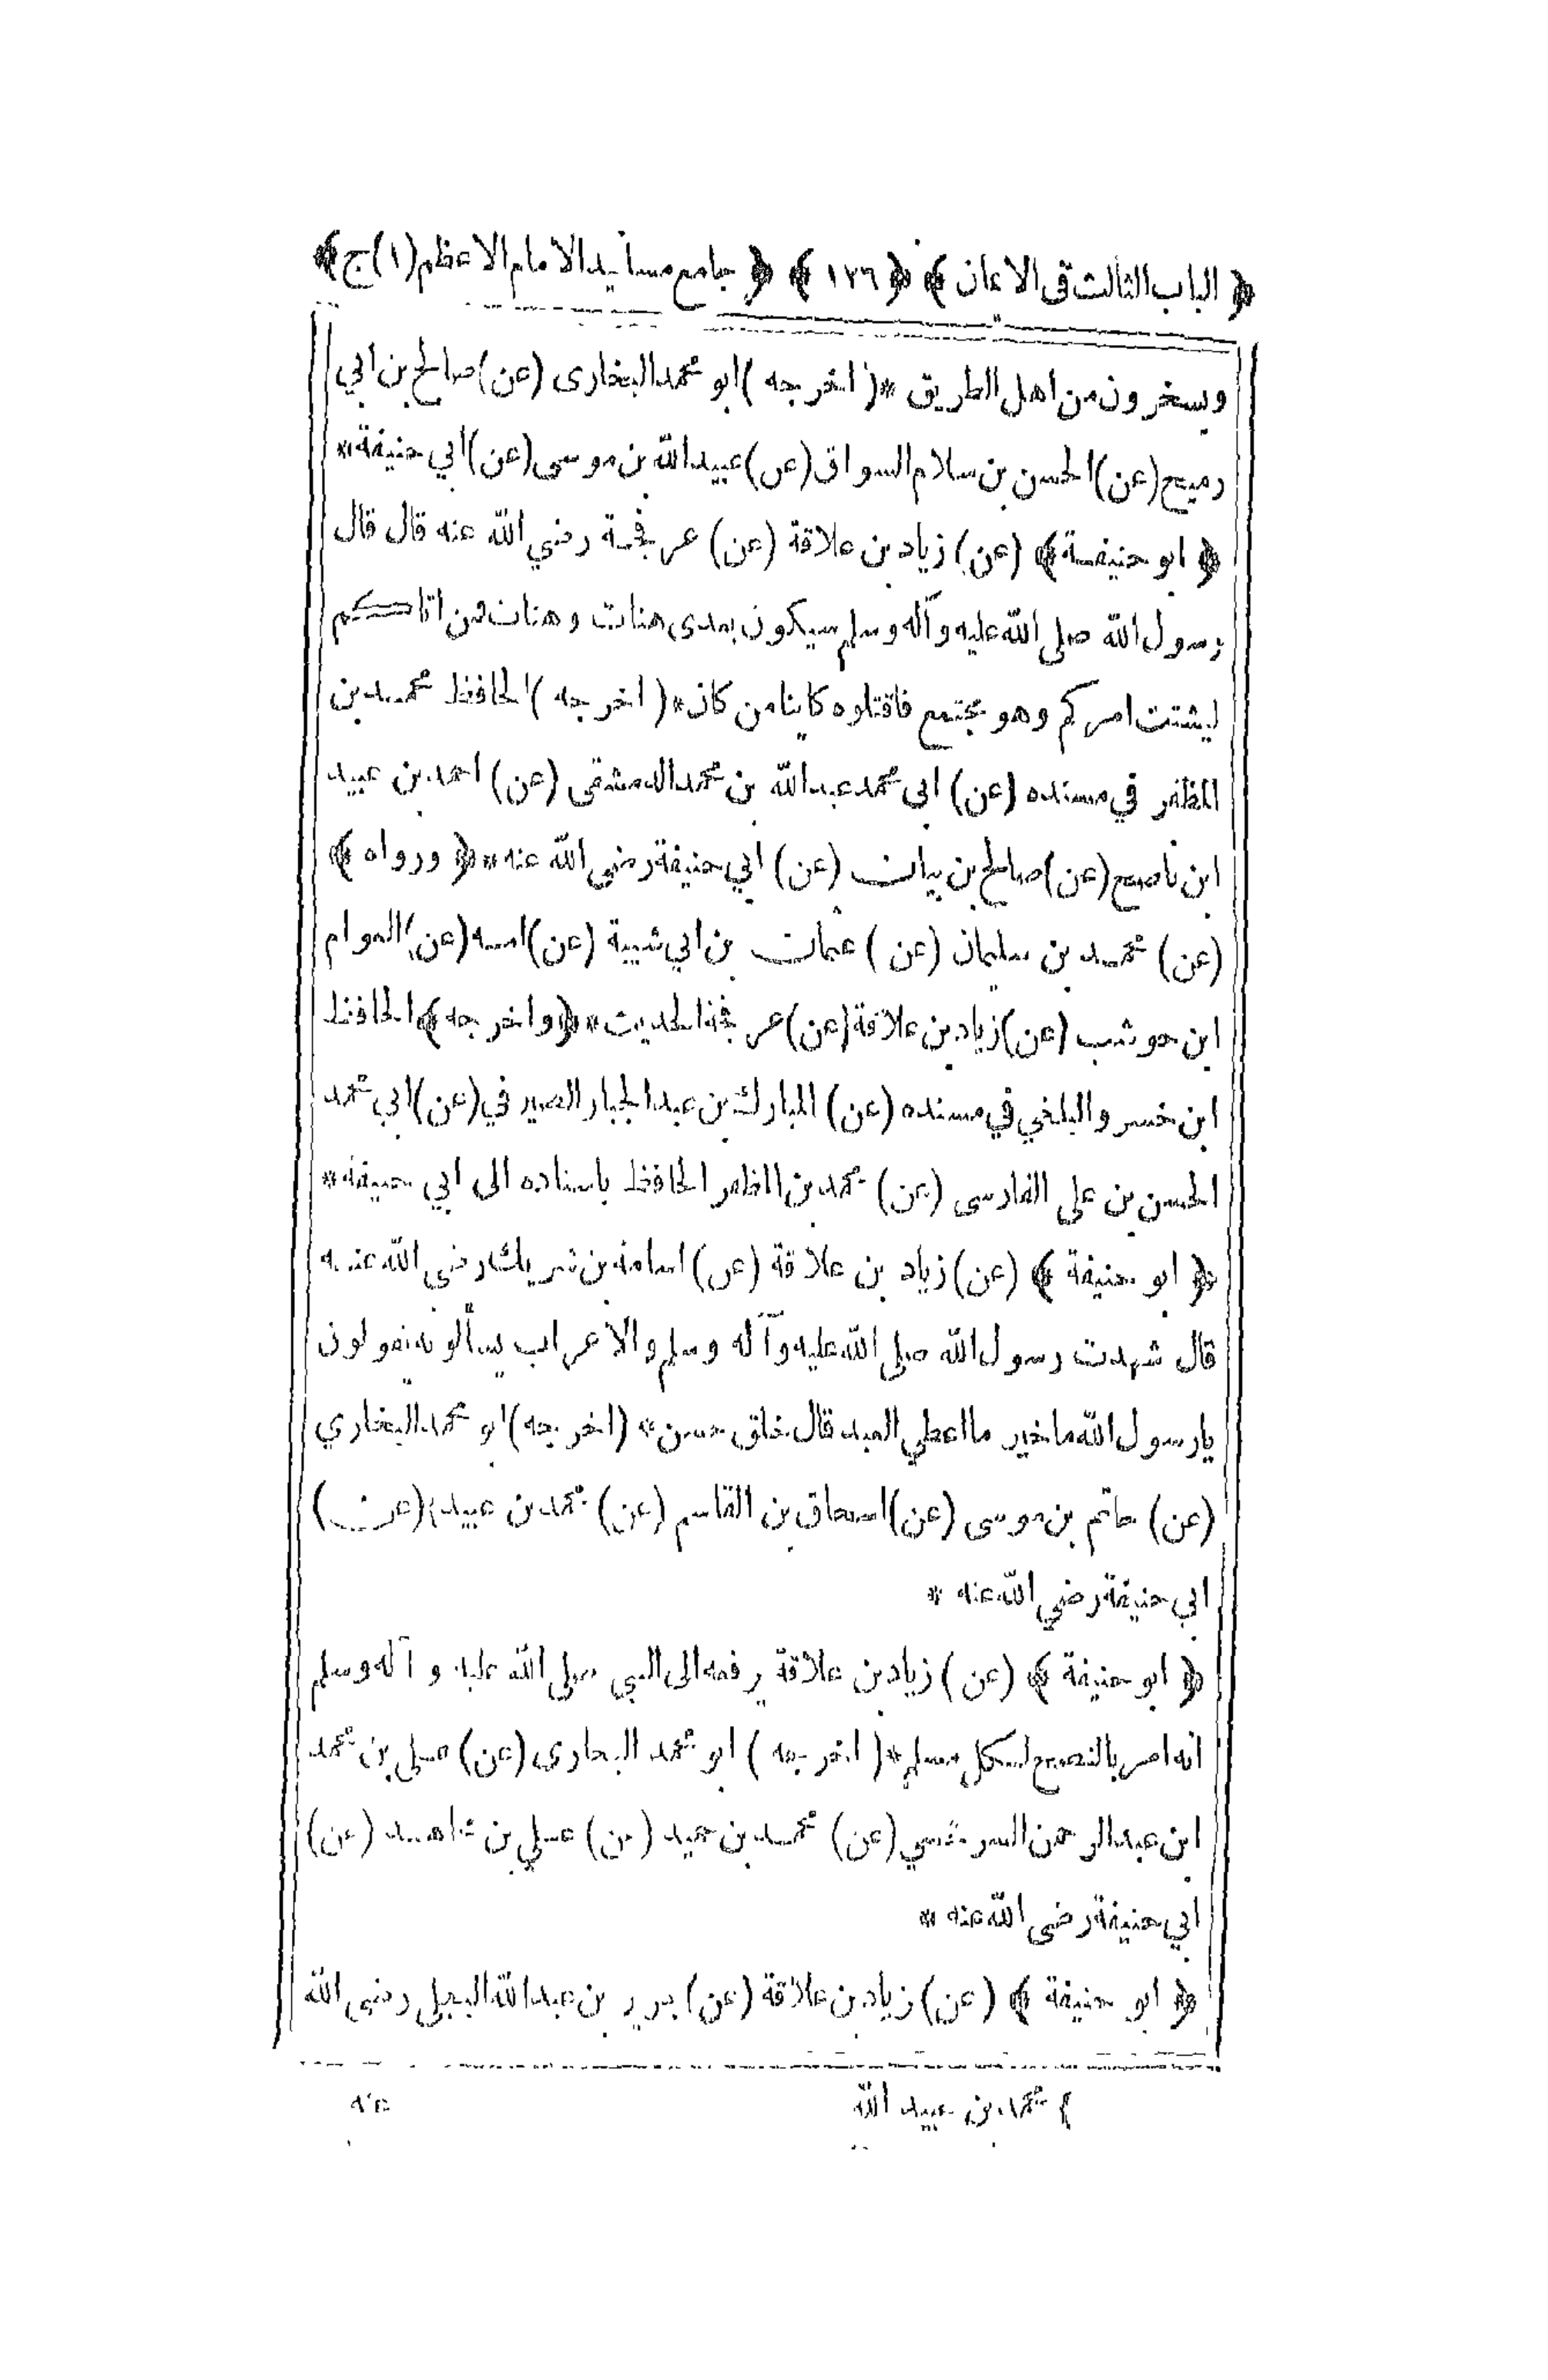 ﴿ الباب الثالث فى الايمان ﴾ ﴿ ١٢٦ ﴾ ﴿ جامع مسانيد الامام الاعظم (١) ج ﴾
ويسخرون من اهل الطريق * ( اخرجه ) ابو محمد البخارى (عن) صالح بن ابي
رميح (عن) الحسن بن سلام السواق (عن) عبيد الله بن موسى (عن) ابي حنيفة *
﴿ ابو حنيفة ﴾ (عن) زياد بن علاقة (عن) عرفجة رضي الله عنه قال قال
رسول الله صلى الله عليه وآله وسلم سيكون بعدى هنات وهنات فمن اتاكم
ليشتت امركم وهو مجتمع فاقتلوه كاينا من كان * ( اخرجه ) الحافظ محمد بن
المظفر في مسنده (عن) ابى محمد عبد الله بن محمد الدمشقى (عن) احمد بن عبيد
ابن ناصح (عن) صالح بن بيان (عن) ابي حنيفة رضي الله عنه * ﴿ ورواه ﴾
(عن) محمد بن سليمان (عن) عثمان بن ابي شيبة (عن) (عن) العوام
ابن حوشب (عن) زياد بن علاقة (عن) عرفجة الحديث * ﴿ واخرجه ﴾ الحافظ
ابن خسرو البلخي في مسنده (عن) المبارك بن عبد الجبار الصيرفي (عن) ابي محمد
الحسن بن على الفارسى (عن) محمد بن المظفر الحافظ باسناده الى ابي حنيفة *
﴿ ابو حنيفة ﴾ (عن) زياد بن علاقة (عن) اسامة بن شريك رضي الله عنه
قال شهدت رسول الله صلى الله عليه وآله وسلم والاعراب يسألونه يقولون
يارسول الله ما خير ما اعطي العبد قال خلق حسن * ( اخرجه ) ابو محمد البخاري
(عن) حاتم بن موسى (عن) اسحاق بن القاسم (عن) محمد بن عبيد (عن)
ابي حنيفة رضي الله عنه *
﴿ ابو حنيفة ﴾ (عن) زياد بن علاقة يرفعه الى النبي صلى الله عليه وآله وسلم
انه امر بالنصح لكل مسلم * ( اخرجه ) ابو محمد البخارى (عن) على بن محمد
ابن عبد الرحمن السرخسي (عن) محمد بن حميد (عن) علي بن مجاهد (عن)
ابي حنيفة رضى الله عنه *
﴿ ابو حنيفة ﴾ (عن) زياد بن علاقة (عن) جرير بن عبد الله البجلى رضى الله
محمد بن عبيد الله